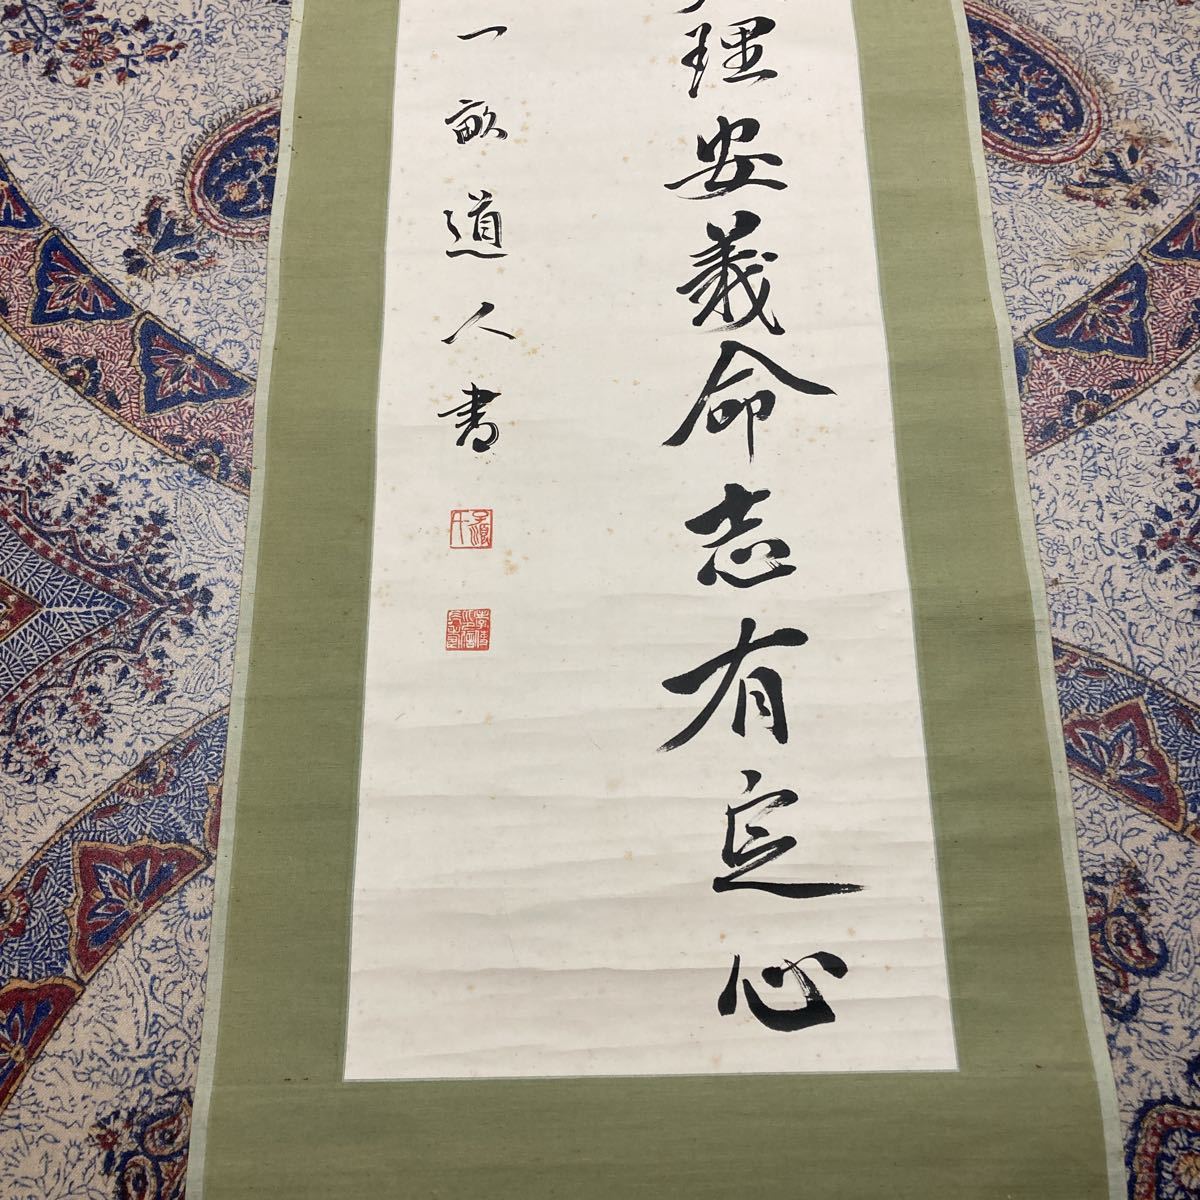 理安義命志有定心
一畝道人書